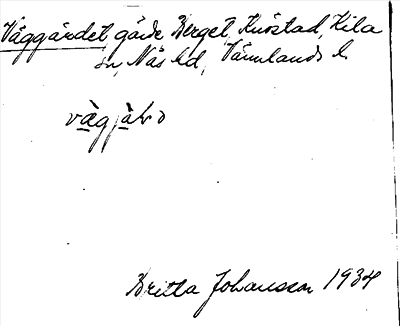 Väggärdet, gärde Berget, Knöstad, Kila
sn, Näs hd, Värmlands l.
Britta Johansson 1934